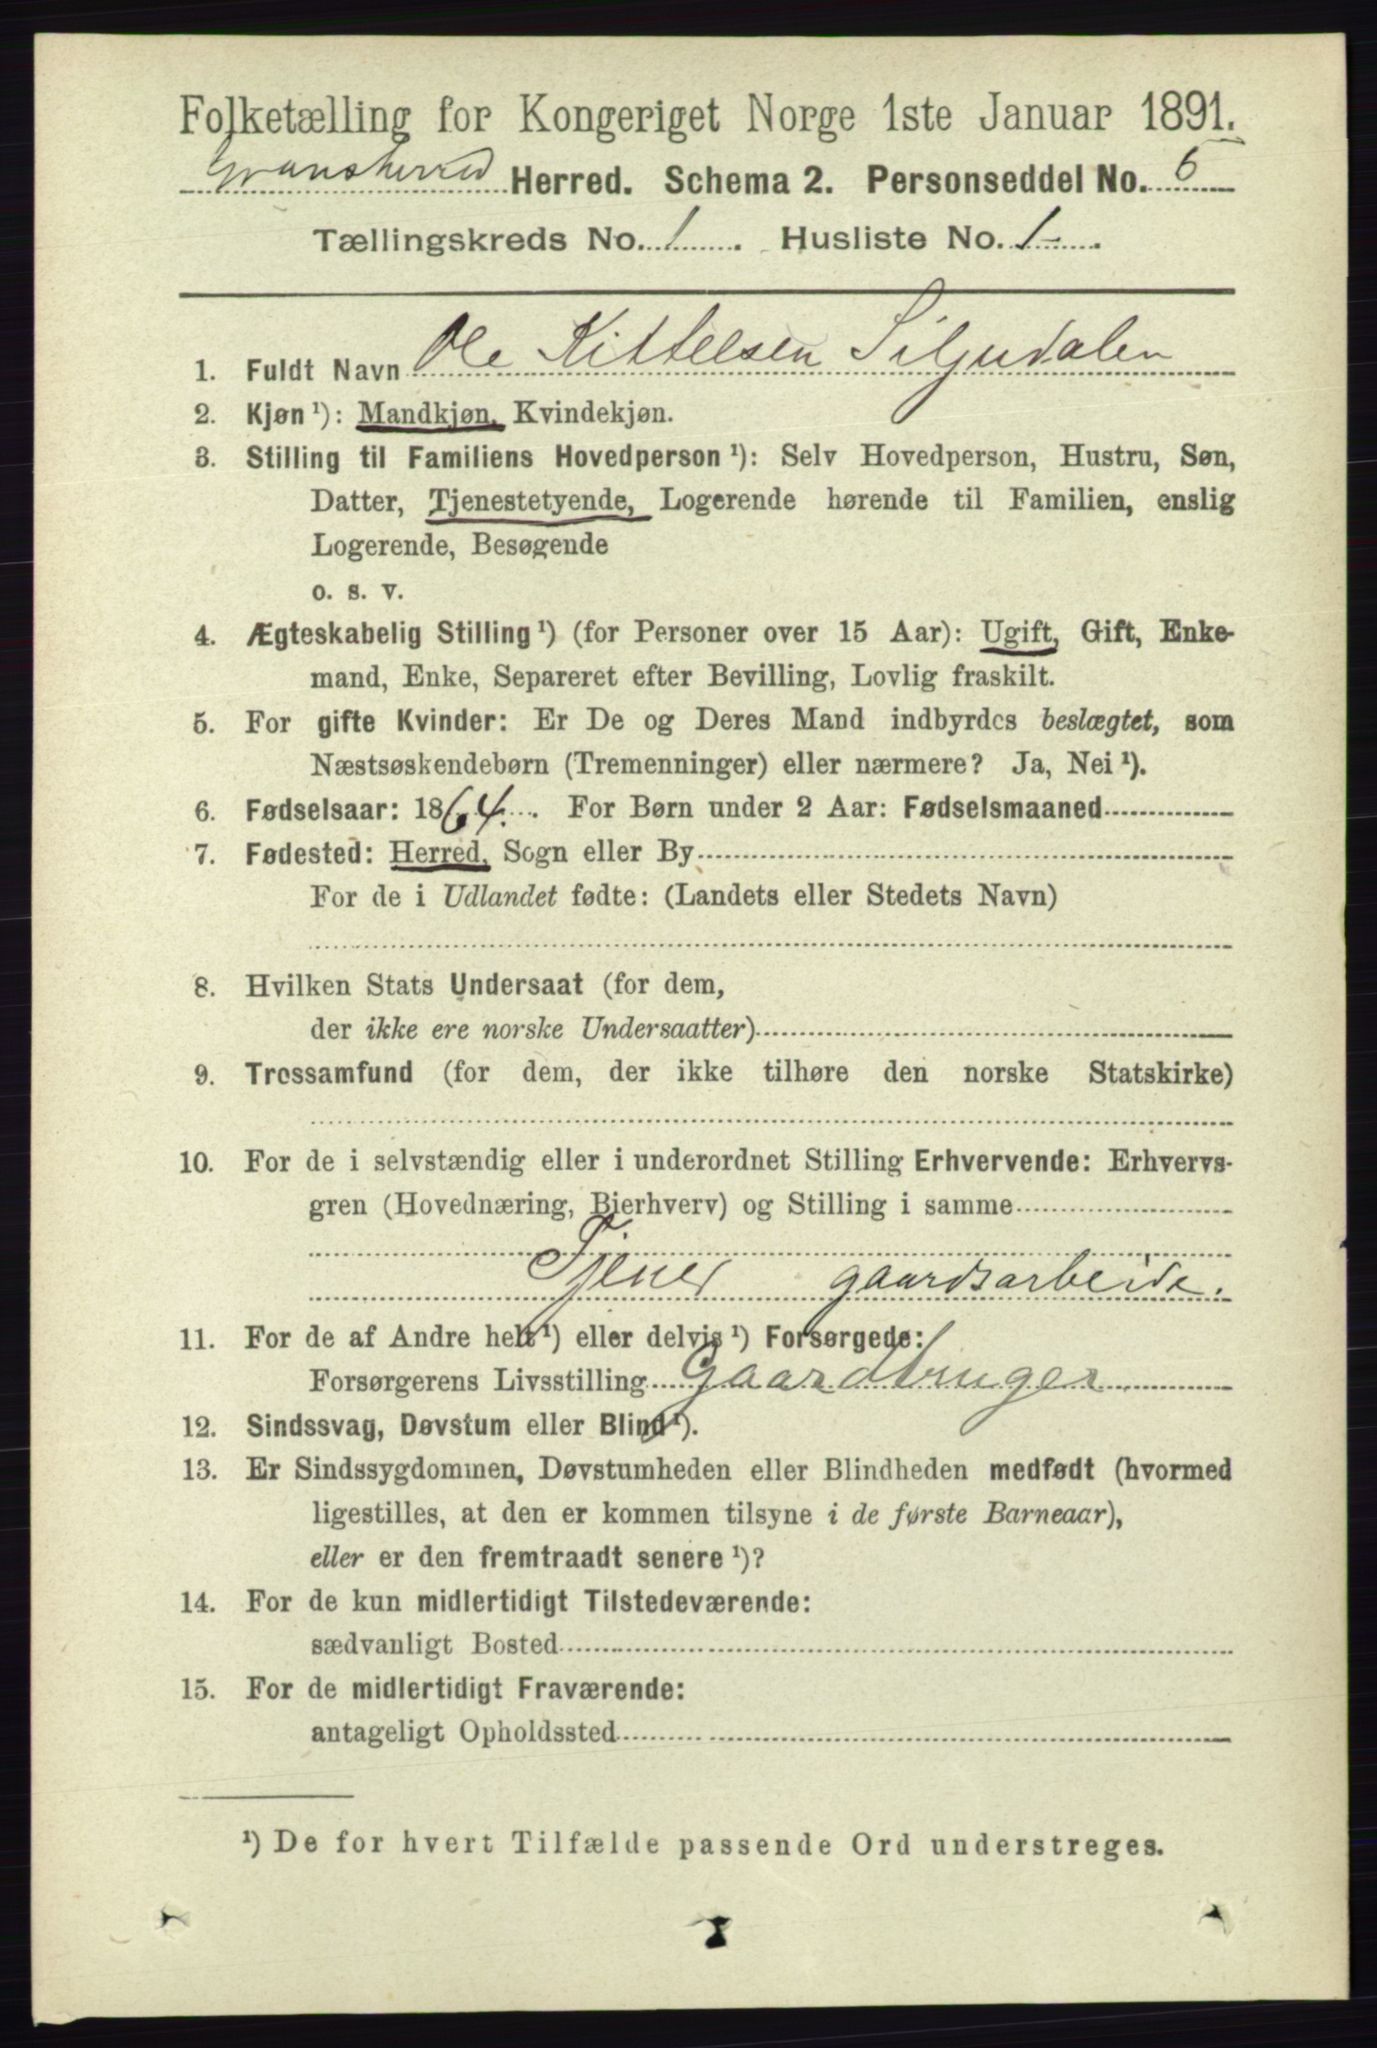 Folketælling for Kongeriget Norge 1ste Januar 1891.
Gransherred Herred. Schema 2. Personseddel No. 6
Tællingskreds No. 1. Husliste No. 1.
1. Fuldt Navn Ole Kittelsen Siljudalen
2. Kjøn ¹): Mandkjøn, Kvindekjøn.
3. Stilling til Familiens Hovedperson ¹): Selv Hovedperson, Hustru, Søn,
Datter, Tjenestetyende, Logerende hørende til Familien, enslig
Logerende, Besøgende
o. s. v.
4. Ægteskabelig Stilling ¹) (for Personer over 15 Aar): Ugift, Gift, Enke-
mand, Enke, Separeret efter Bevilling, Lovlig fraskilt.
5. For gifte Kvinder: Er De og Deres Mand indbyrdes beslægtet, som
Næstsøskendebørn (Tremenninger) eller nærmere? Ja, Nei ¹).
6. Fødselsaar: 1864. For Børn under 2 Aar: Fødselsmaaned
7. Fødested: Herred, Sogn eller By
For de i Udlandet fødte: (Landets eller Stedets Navn)
8. Hvilken Stats Undersaat (for dem,
der ikke ere norske Undersaatter)
9. Trossamfund (for dem, der ikke tilhøre den norske Statskirke)
10. For de i selvstændig eller i underordnet Stilling Erhvervende: Erhvervs-
gren (Hovednæring, Bierhverv) og Stilling i samme
Tjener gaardsarbeide.
11. For de af Andre helt ¹) eller delvis ¹) Forsørgede:
Forsørgerens Livsstilling Gaardbruger
12. Sindssvag, Døvstum eller Blind ¹).
13. Er Sindssygdommen, Døvstumheden eller Blindheden medfødt (hvormed
ligestilles, at den er kommen tilsyne i de første Barneaar),
eller er den fremtraadt senere ¹)?
14. For de kun midlertidigt Tilstedeværende:
sædvanligt Bosted
15. For de midlertidigt Fraværende:
antageligt Opholdssted
¹) De for hvert Tilfælde passende Ord understreges.